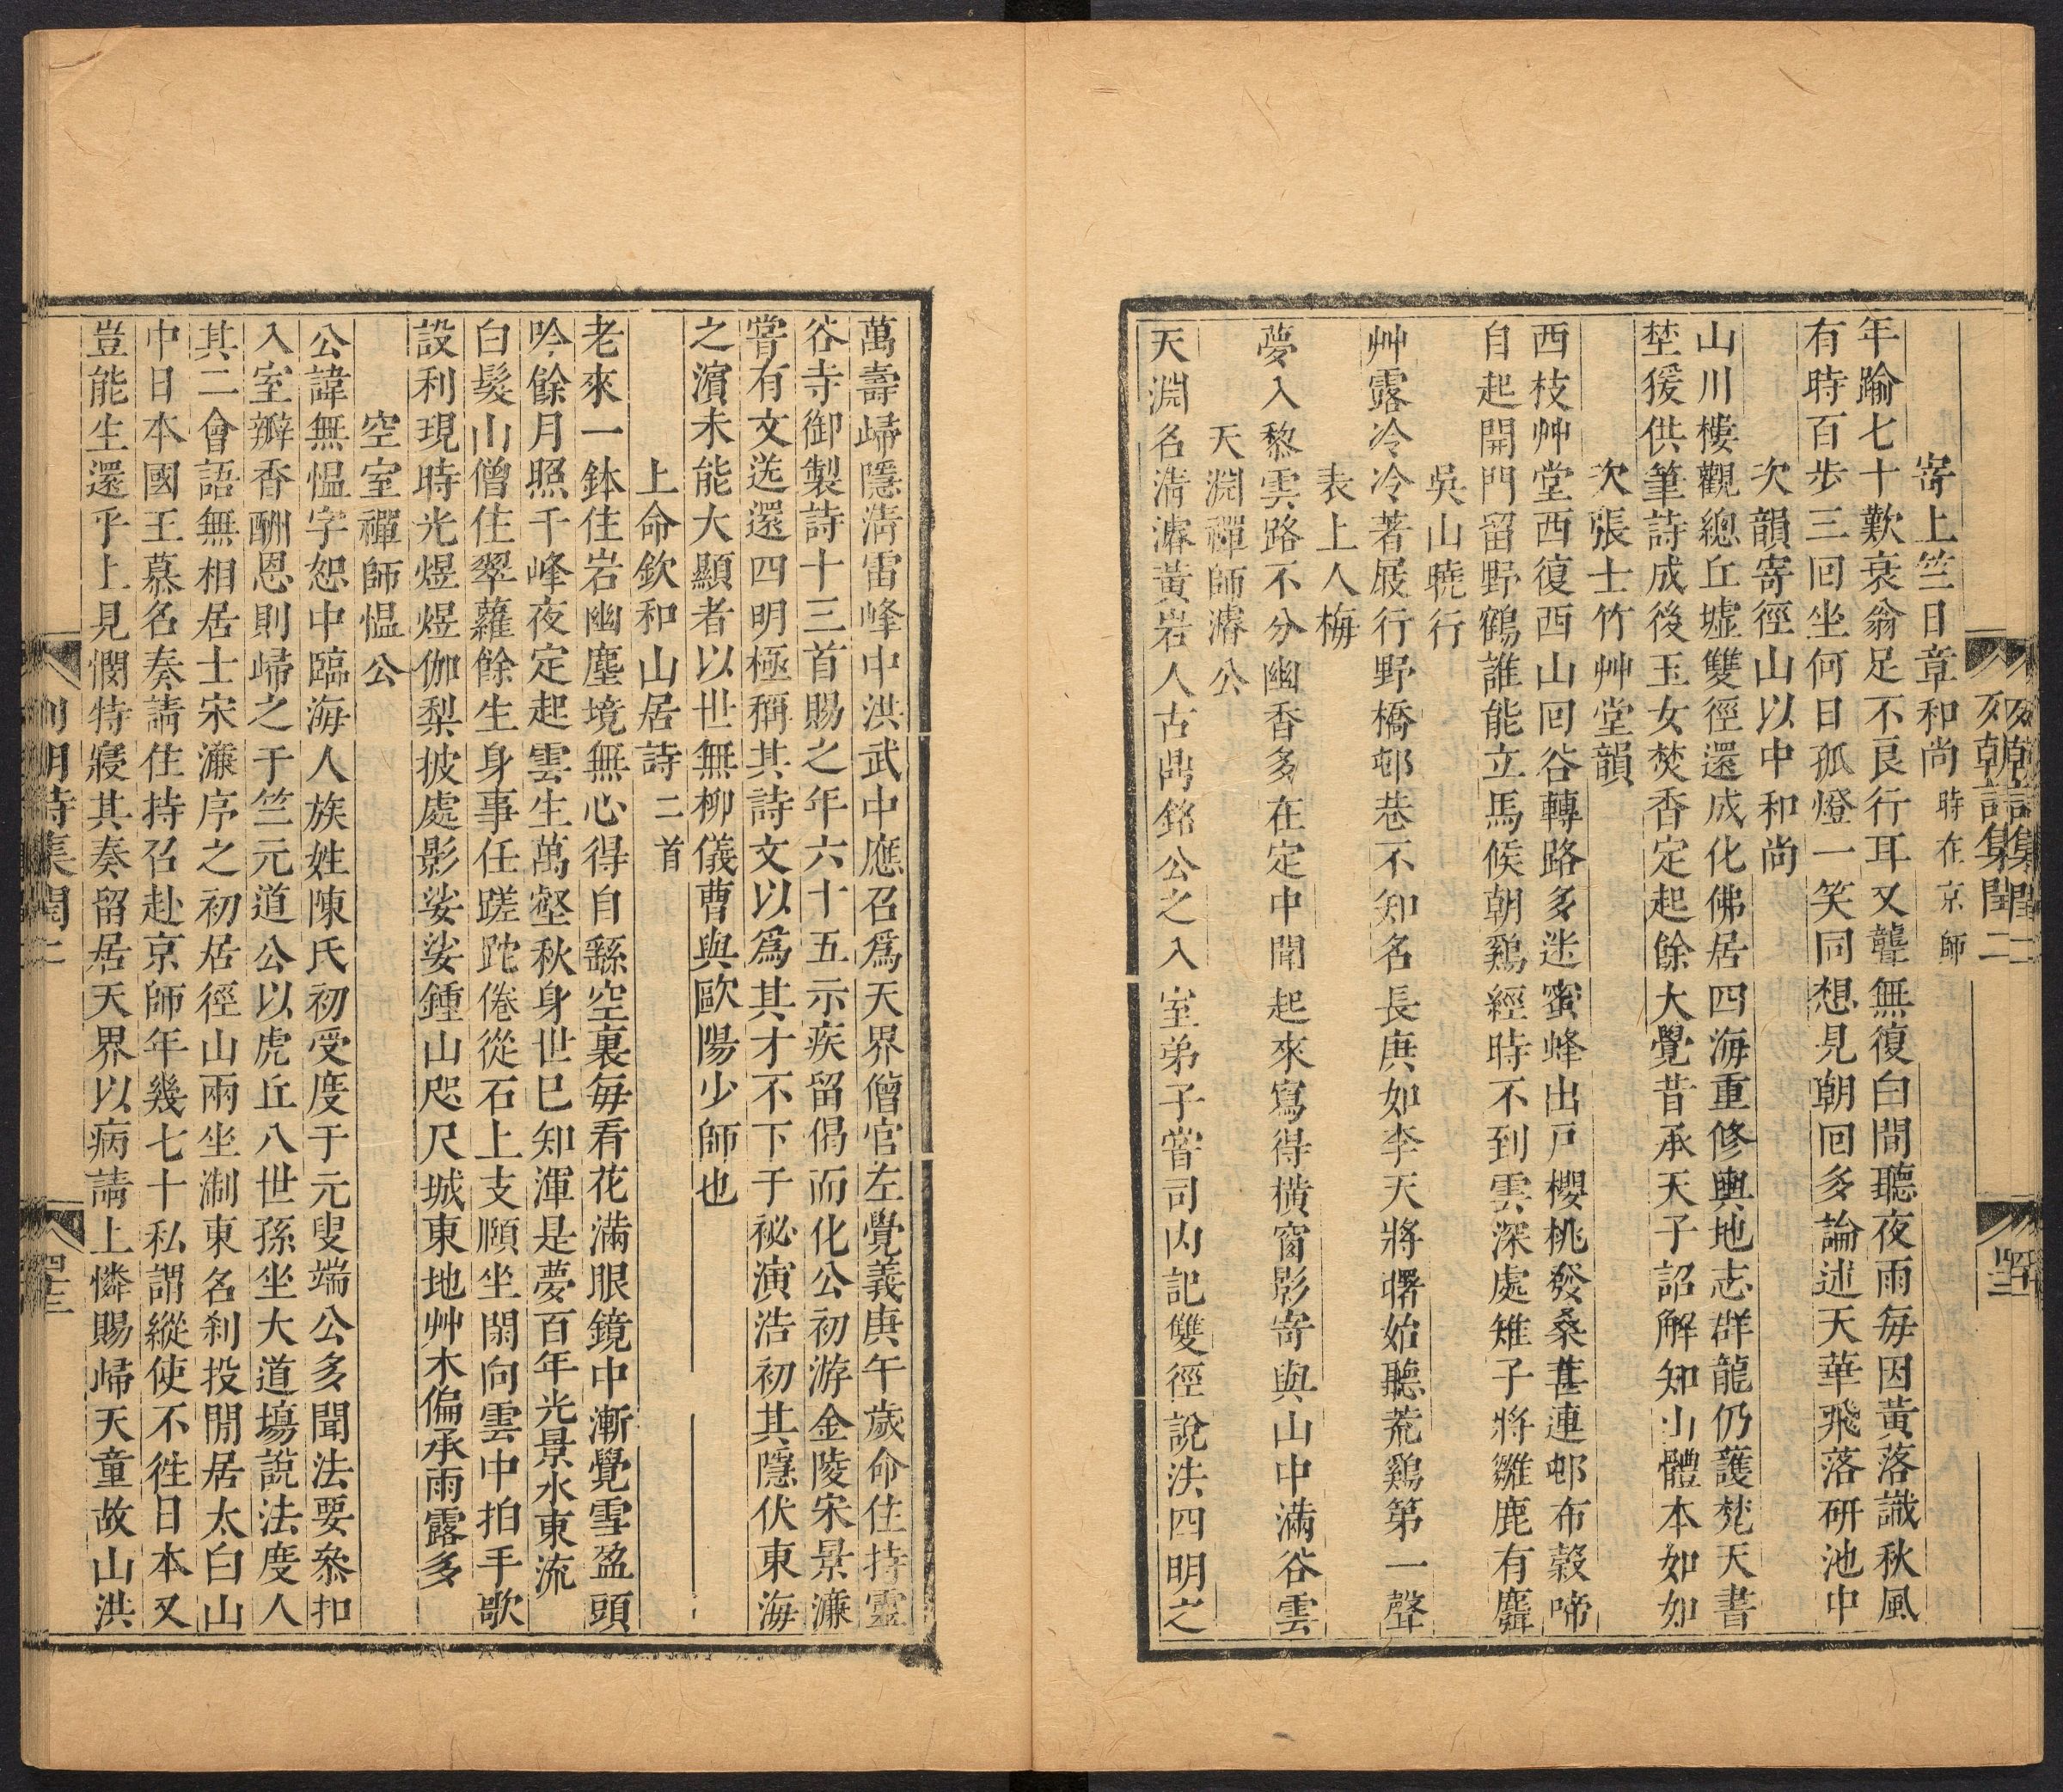 列朝詩集閏二
寄上竺日章和尚時在京師
年踰七十歎衰翁足不良行耳又聾無復白間聽夜雨每因黃落識秋風
有時百步三回坐何日孤燈一笑同想見朝回多論述天華飛落研池中
次韻寄徑山以中和尚
山川樓觀總丘墟雙徑還成化佛居四海重修輿地志群龍仍護梵天書
埜猨供筆詩成後玉女焚香定起餘大覺昔承天子詔解知山體本如如
次張士竹艸堂韻
西枝艸堂西復西山回谷轉路多迷蜜蜂出戶櫻桃發桑葚連邨布穀啼
自起開門留野鶴誰能立馬候朝鷄經時不到雲深處雉子將雛鹿有麛
吳山曉行
艸露冷冷著屐行野橋邨巷不知名長庚如李天將曙始聽荒鷄第一聲
表上人梅
夢入黎雲路不分幽香多在定中聞起來寫得橫窗影寄與山中滿谷雲
天淵禪師濬公
天淵名清濬黃岩人古鼎銘公之入室弟子嘗司內記雙徑說法四明之
萬壽歸隱淸雷峰中洪武中應召爲天界僧官左覺義庚午歲命住持靈
谷寺御製詩十三首賜之年六十五示疾留偈而化公初游金陵宋景濂
嘗有文送還四明極稱其詩文以爲其才不下于祕演浩初其隱伏東海
之濵未能大顯者以世無柳儀曹與歐陽少師也
上命欽和山居詩二首
老來一鉢住岩幽塵境無心得自繇空裏每看花滿眼鏡中漸覺雪盈頭
吟餘月照千峰夜定起雲生萬壑秋身世已知渾是夢百年光景水東流
白髮山僧住翠蘿餘生身事任蹉跎倦從石上支頤坐閑向雲中拍手歌
設利現時光煜煜伽梨披處影娑娑鍾山咫尺城東地艸木偏承雨露多
空室禪師慍公
公諱無慍字恕中臨海人族姓陳氏初受度于元叟端公多聞法要叅扣
入室瓣香酬恩則歸之于竺元道公以虎丘八世孫坐大道塲說法度人
其二會語無相居士宋濂序之初居徑山兩坐淛東名刹投閒居太白山
中日本國王慕名奏請住持召赴京師年幾七十私謂縱使不徃日本又
豈能生還乎上見憫特寢其奏留居天界以病請上憐賜歸天童故山洪